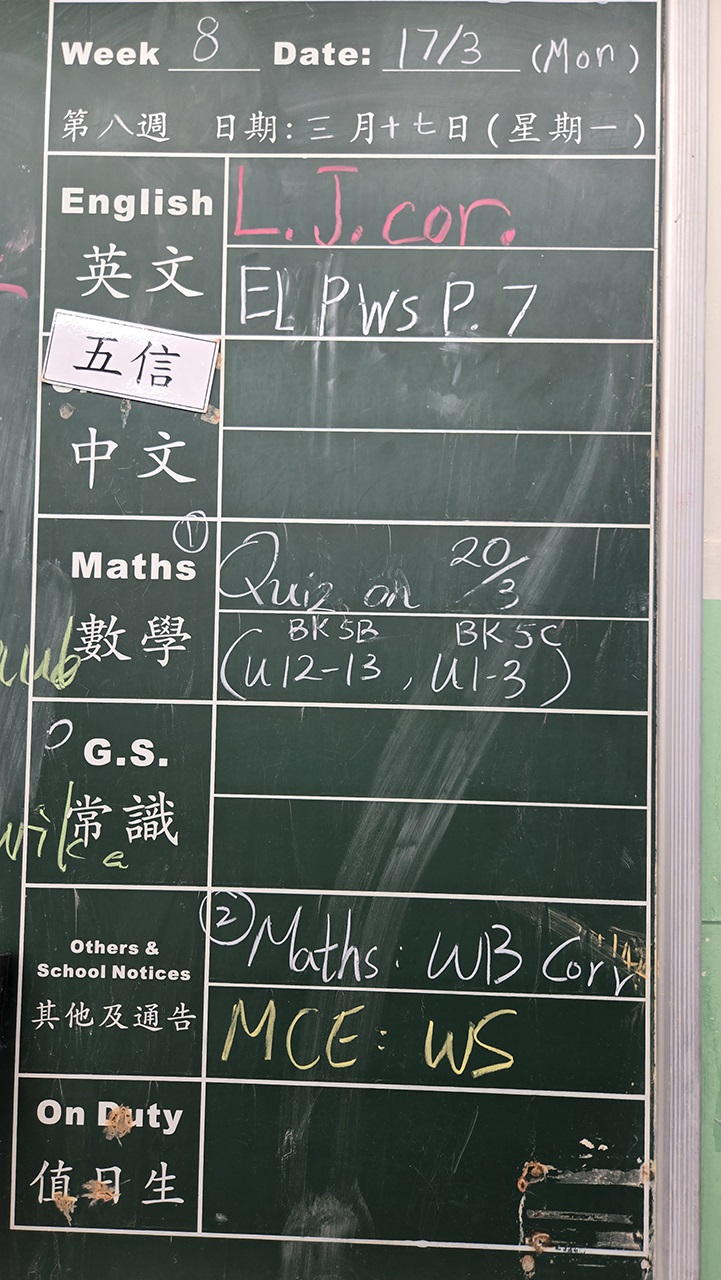 Week 8 Date: 17/3 (Mon)
第八週 日期: 三月十七日 (星期一)
English
英文
L.J. cor.
EL P WS P. 7
五信
中文
Maths ①
數學
Quiz on 20/3
BK 5B BK 5C
(U 12-13, U1-3)
G.S.
常識
Others &
School Notices
其他及通告
② Maths: WB Corr
MCE: WS
On Duty
值日生